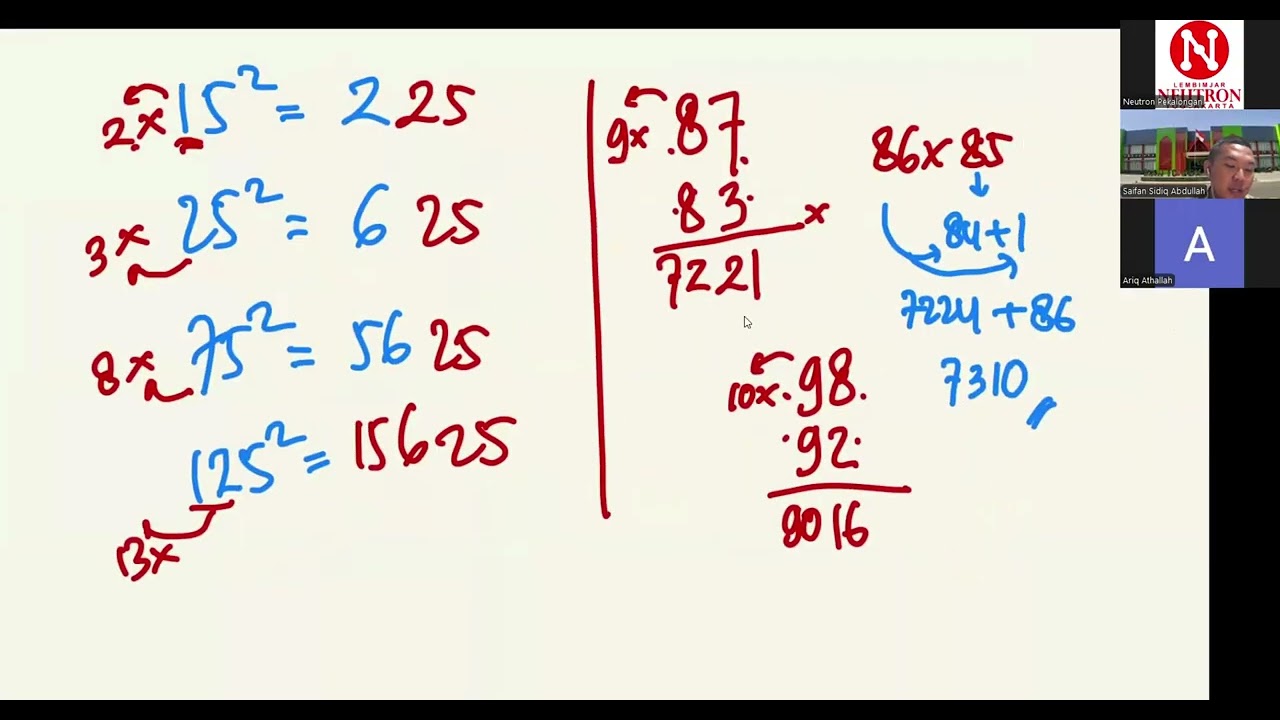 2x 15² = 225
3x 25² = 625
8x 75² = 5625
125² = 15625
13x
9x .87.
.83. x
7221
86x85
84+1
7224+86
7310
10x .98.
.92.
8016
N
LEMBIMJAR
NEUTRON
Neutron Pekalongan
Saifan Sidiq Abdullah
A
Ariq Athallah